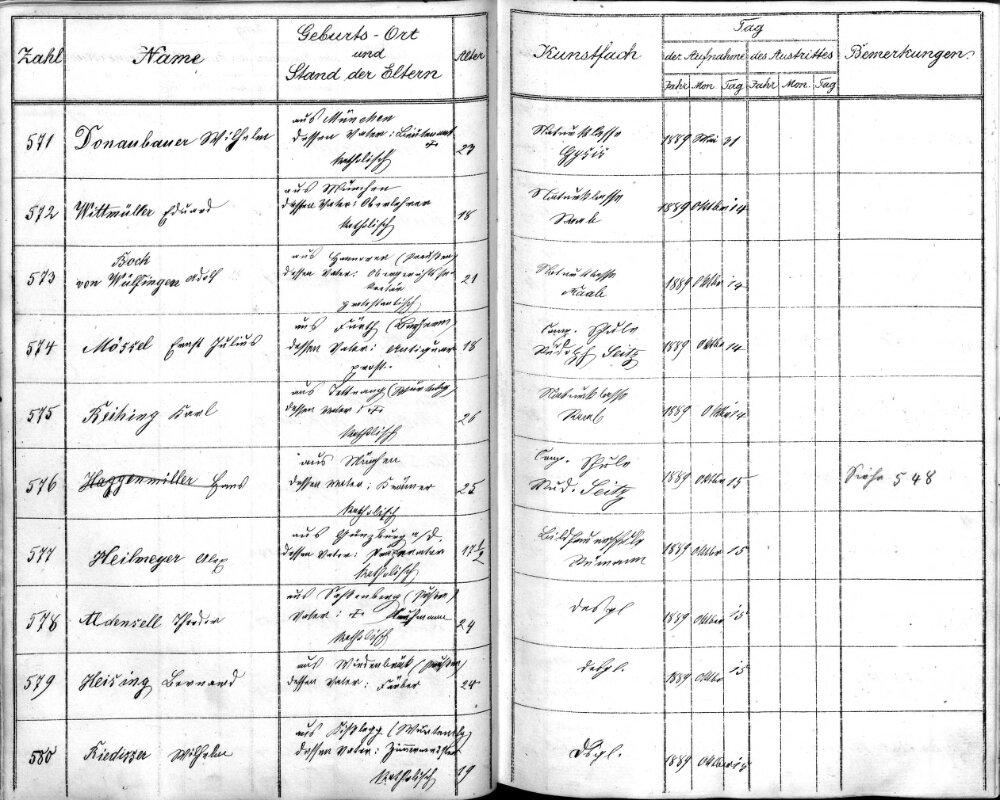 Zahl Name Geburts-Ort und Stand der Eltern Alter Kunstfach Tag Bemerkungen.
der Aufnahme des Austrittes
Jahr Mon Tag Jahr Mon. Tag
571 Donaubauer Wilhelm
aus München
dessen Vater: Leutenant †
katholisch
23
Naturklasse
Gysis
1889 Mai 21
572 Wittmüller Eduard
aus München
dessen Vater: Oberlehrer
katholisch
18
Naturklasse
Raab
1889 Oktbr 14
573 Koch von Wülfingen Adolf
aus Hannover (Preußen)
dessen Vater:
protestantisch
21
Naturklasse
Raab
1889 Oktbr 14
574 Mössel Ernst Julius
aus Fürth (Bayern)
dessen Vater: Antiquar
prost.
18
Comp. Schule
Rudolf Seitz
1889 Oktbr 14
575 Reihing Karl
aus Tettnang (Württbg)
dessen Vater: †
katholisch
26
Naturklasse
Raab
1889 Oktbr 14
576 Haggenmiller Hans
aus München
dessen Vater: Krämer
katholisch
25
Comp. Schule
Rud. Seitz
1889 Oktbr 15
Siehe 548
577 Heilmeyer Alex
aus Günzburg a/d.
dessen Vater: Präparater
katholisch
17 1/2
Bildhauerschule
Rümann
1889 Oktbr 15
578 Aldensell Theodor
Vater: † Kaufmann
katholisch
24
desgl
1889 Oktber 15
579 Heising Bernard
aus Wiedenbrück (Preußen)
dessen Vater: Färber
24
desgl.
1889 Oktbr 15
580 Riedisser Wilhelm
aus Kißlegg (Württenbg)
dessen Vater: Zimmermeister
katholisch
19
Desgl.
1889 Oktober 15